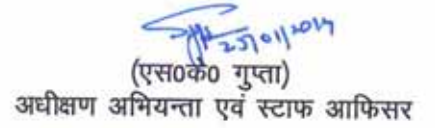 25/01/2019
(एस0के0 गुप्ता)
अधीक्षण अभियन्ता एवं स्टाफ आफिसर